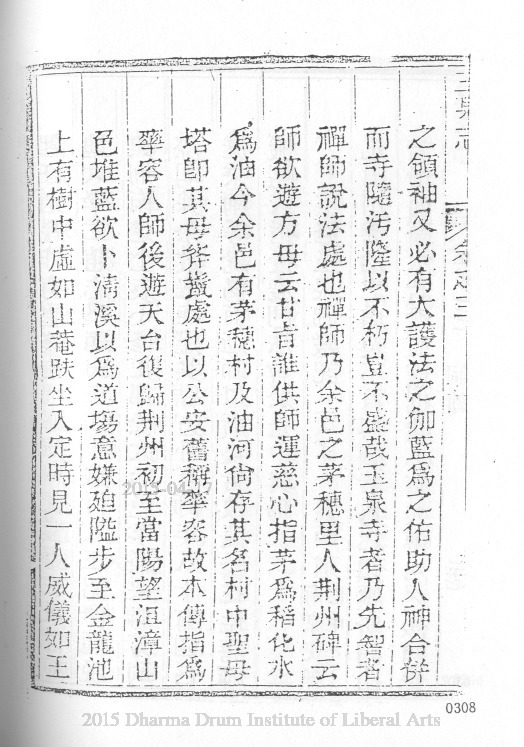 玉泉志
之領袖又必有大護法之伽藍爲之佑助人神合併
而寺隨汚隆以不朽豈不盛哉玉泉寺者乃先智者
禪師說法處也禪師乃余邑之茅穗里人荆州碑云
師欲遊方母云甘旨誰供師運慈心指茅爲稻化水
爲油今余邑有茅穗村及油河尙存其名村中聖母
塔卽其母斧鬢處也以公安舊稱華容故本傳指爲
華容人師後遊天台復歸荆州初至當陽望沮漳山
色堆藍欲卜淸溪以爲道場意嫌廹隘步至金龍池
上有樹中虛如山菴趺坐入定時見一人威儀如王
0308
2015 Dharma Drum Institute of Liberal Arts